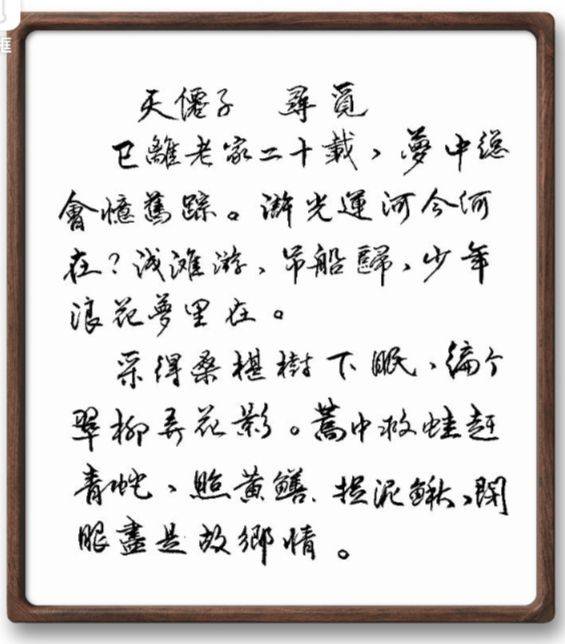 框
天僊子 尋覓
已離老家二十載，夢中總
會憶舊蹤。游光運河今何
在？浅滩游、吊船歸，少年
浪花夢里在。
采得桑椹樹下眠、編个
翠柳弄花影。蒿中救蛙赶
青蛇、照黄鱔、捉泥鳅，閉
眼盡是故鄉情。